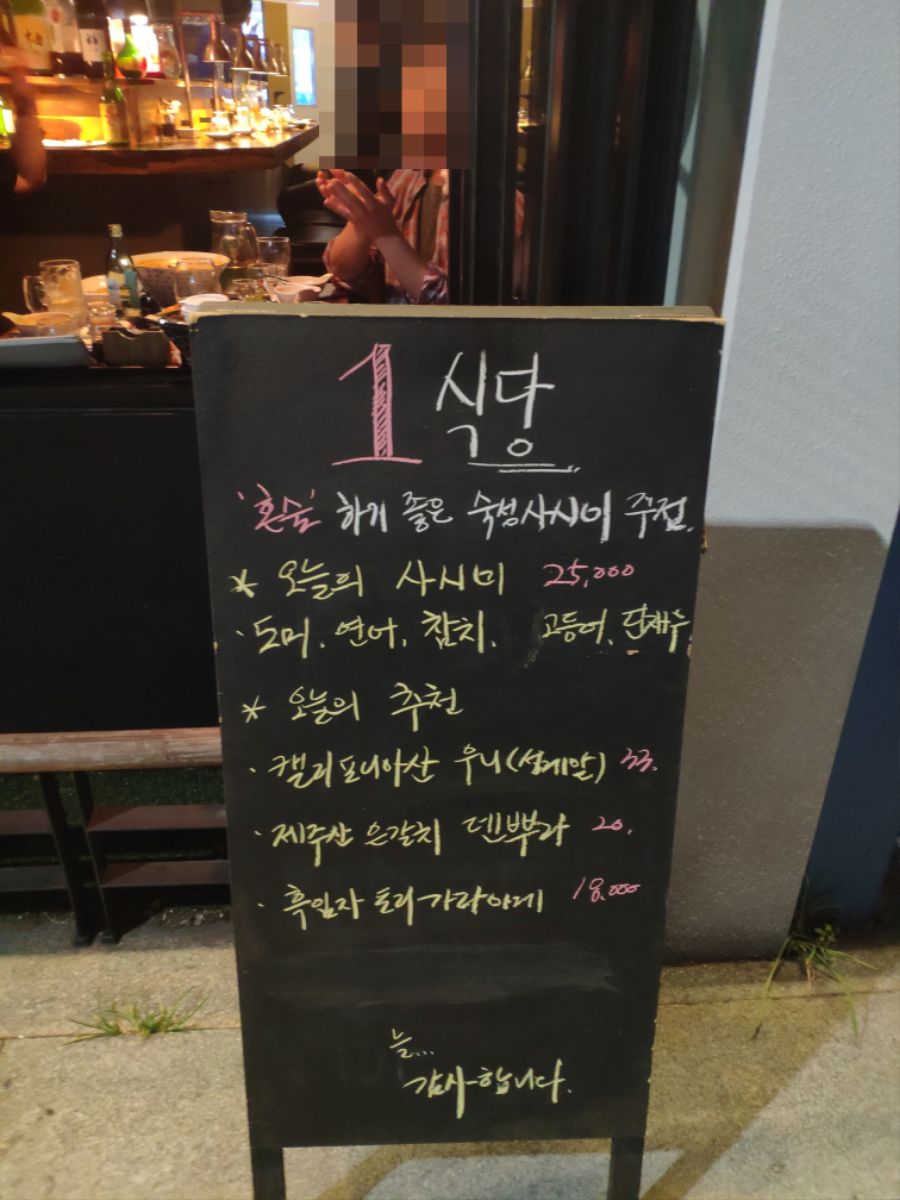 1 식당
'혼술' 하기 좋은 숙성사시미 주점.
* 오늘의 사시미 25,000
· 도미. 연어. 참치. 고등어. 단새우
* 오늘의 추천
· 캘리포니아산 우니(성게알) 33.
· 제주산 은갈치 덴뿌라 20.
· 흑임자 토리가라아게 18,000
늘...
감사합니다.